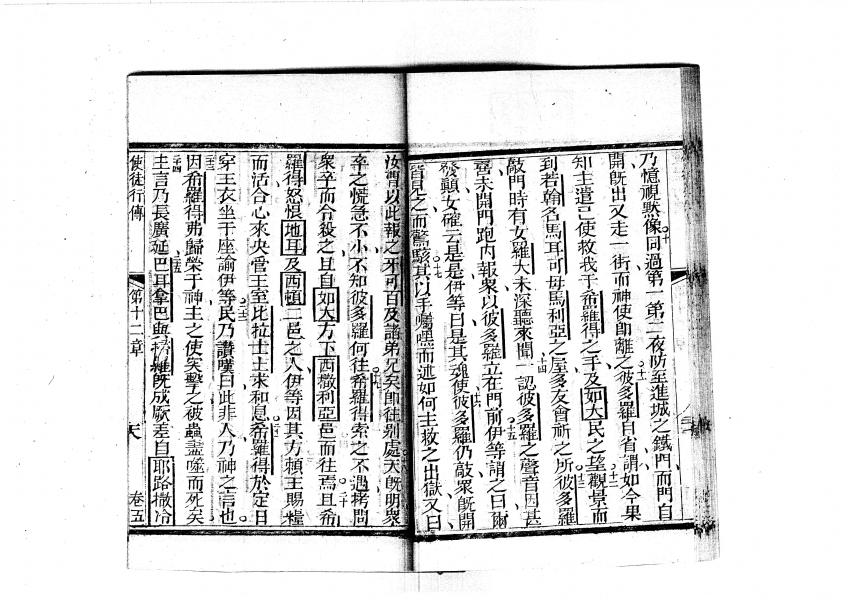 乃憶視默像同過第一第二夜防至進城之鐵門而門自
開既出又走一街而神使即離之彼多羅自省謂如今果
知主遣己使救我于希羅得之手及如大民之望觀景而
到若翰名馬耳可毋馬利亞之屋多友會祈之所彼多羅
敲門時有女羅大未深聽來聞一認彼多羅之聲音因甚
喜未開門跑内報衆以彼多羅立在門前伊等謂之曰爾
發顛女確云是是伊等曰是其魂使彼多羅仍敲衆既開
皆見之而驚駭其以手囑嘿而述如何主救之出獄又曰
汝曹以此報之牙可百及諸弟兄矣即往別處天既明衆
卒之慌急不小不知彼多羅何往希羅得索之不遇拷問
衆卒而令殺之且自如大方下西撒利亞邑而往焉且希
羅得怒恨地耳及西頓二邑之人伊等因其方頼王賜糧
而活合心來央管王至比拉士士求和息希羅得於定日
穿王衣坐于座諭伊等民乃讚嘆曰此非人乃神之言也
因希羅得弗歸榮于神主之使突擊之被蟲盡噬而死矣
主言乃長廣延巴耳拿巴與掃羅既成厥差自耶路撒冷
使徒行傳 第十二章 卷五